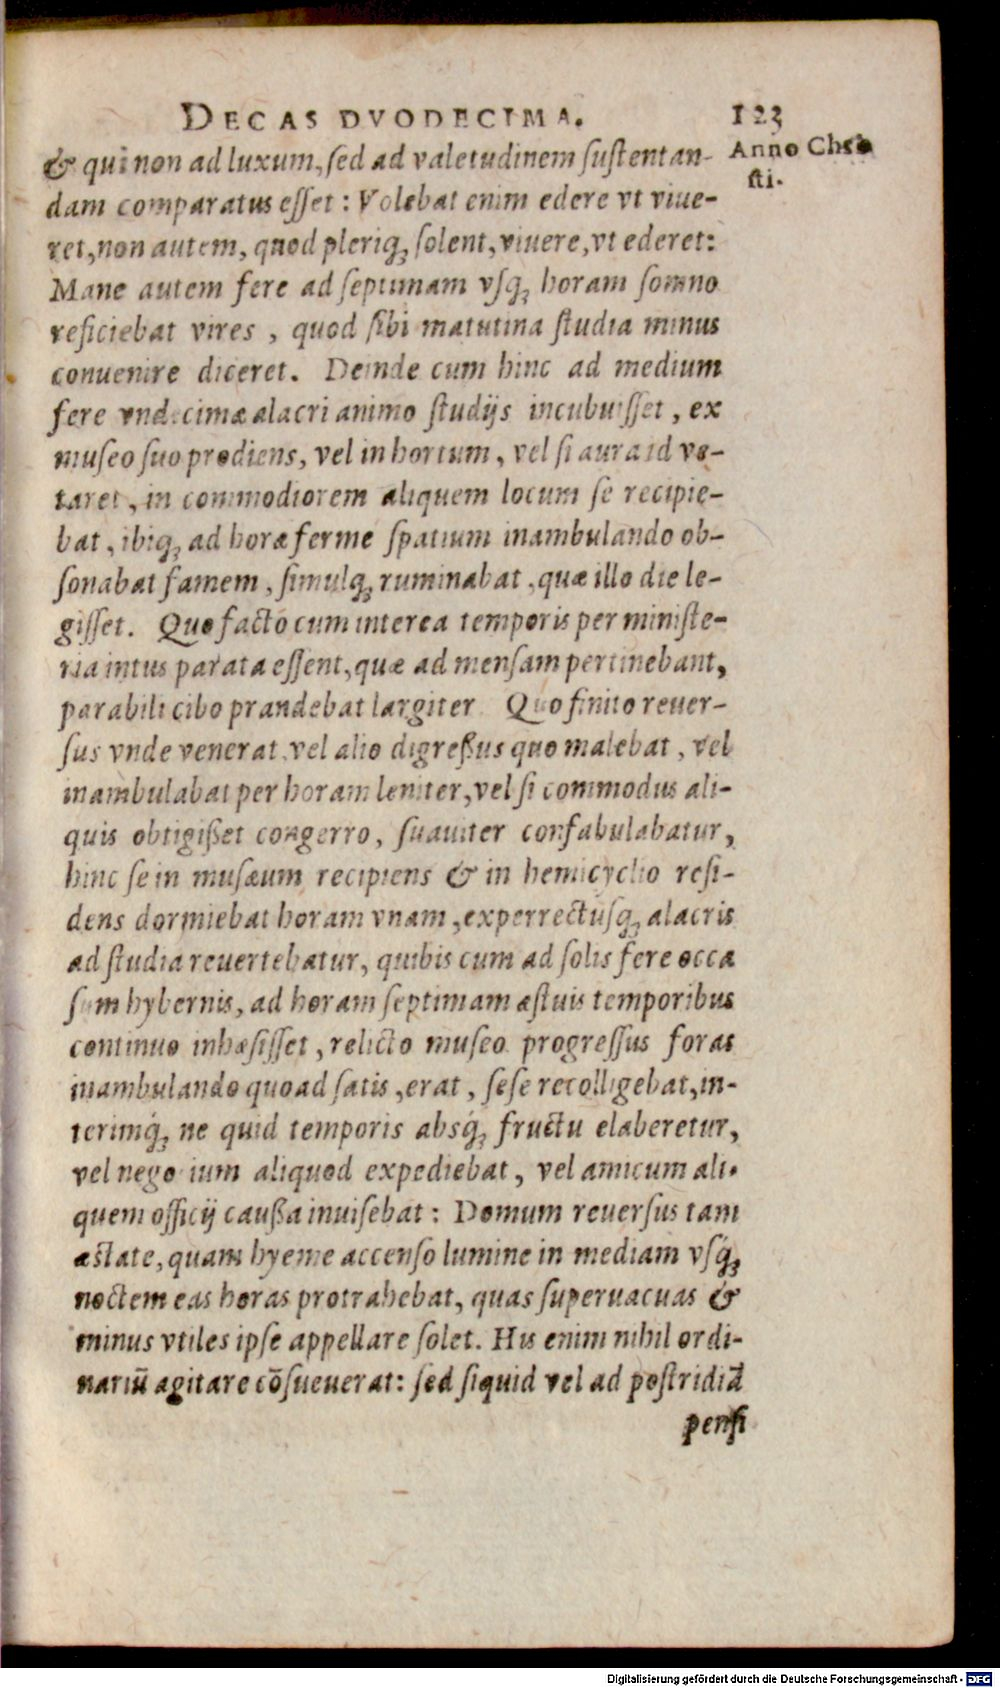 DECAS DVODECIMA. 123
Anno Chri
sti.
& qui non ad luxum, sed ad valetudinem sustentan-
dam comparatus esset: Volebat enim edere vt viue-
ret, non autem, quod pleriq́ue solent, viuere, vt ederet:
Mane autem fere ad septimam vsq; horam somno
reficiebat vires, quod sibi matutina studia minus
conuenire diceret. Deinde cum hinc ad medium
fere vndecimæ alacri animo studijs incubuisset, ex
museo suo prodiens, vel in hortum, vel si aura id ve-
taret, in commodiorem aliquem locum se recipie-
bat, ibiq; ad horæ ferme spatium inambulando ob-
sonabat famem, simulq; ruminabat, quæ illo die le-
gisset. Quo facto cum interea temporis per ministe-
ria intus parata essent, quæ ad mensam pertinebant,
parabili cibo prandebat largiter Quo finito reuer-
sus vnde venerat, vel alio digreßus quo malebat, vel
inambulabat per horam leniter, vel si commodus ali-
quis obtigißet congerro, suauiter confabulabatur,
hinc se in musæum recipiens & in hemicyclio resi-
dens dormiebat horam vnam, experrectusq; alacris
ad studia reuertebatur, quibis cum ad solis fere occa
sum hybernis, ad horam septimam æstuis temporibus
continuo inhæsisset, relicto museo progressus foras
inambulando quoad satis, erat, sese recolligebat, in-
terimq́; ne quid temporis absq́; fructu elaberetur,
vel nego ium aliquod expediebat, vel amicum ali-
quem officij caußa inuisebat: Domum reuersus tam
æstate, quam hyeme accenso lumine in mediam vsq́;
noctem eas horas protrahebat, quas superuacuas &
minus vtiles ipse appellare solet. His enim nihil ordi-
nariū agitare cōsueuerat: sed siquid vel ad postridiā
pensi
Digitalisierung gefördert durch die Deutsche Forschungsgemeinschaft - DFG